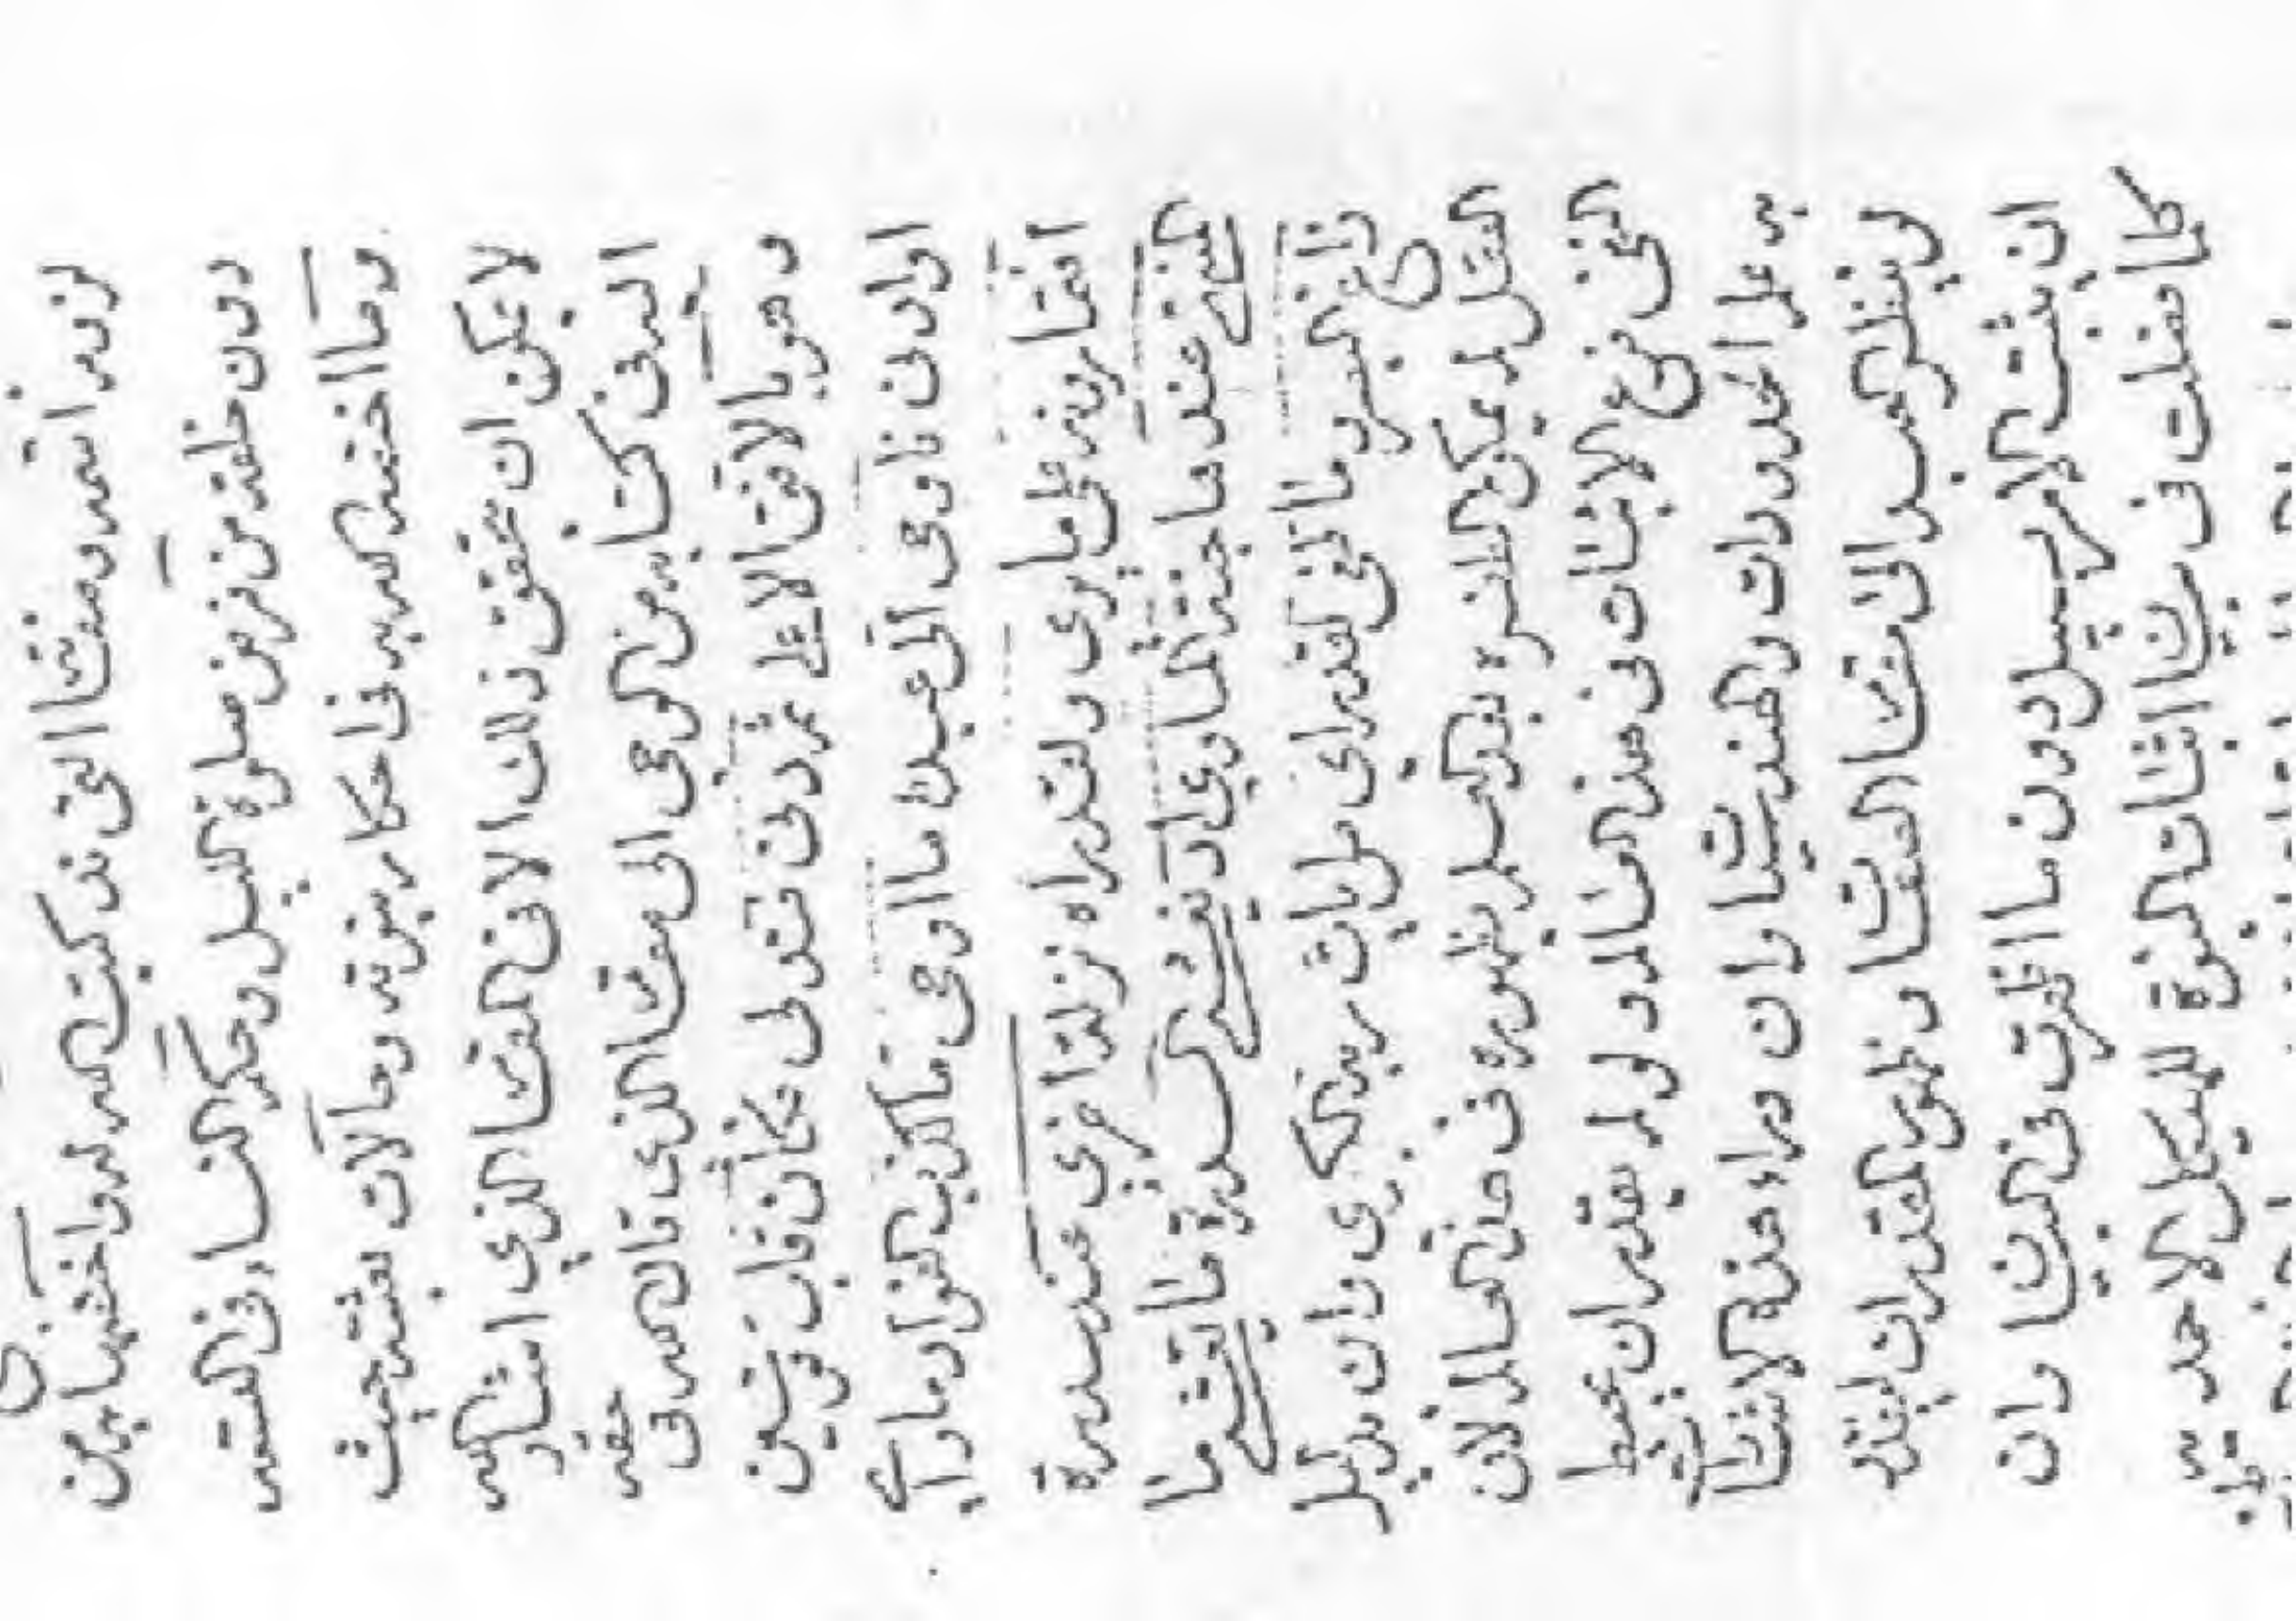 اسمه ومقامات التي قد كتب الله له واختصها به من
دون خلقه من فرض صلوة الليل وحكم النساء في التسعه
وما اختصه الله به في احكام بيوته وحالات نفسه حيث
لا يمكن ان يتحقق ذلك الا في المقام الذي اشار الله
في كتابه من الوحى الى مقام الذى قال الله فى حقه
وهو بالافق الاعلى ثم دنى فتدلى فكان قاب قوسين
او ادنى فاوحى الى عبده ما اوحى ما كذب الفؤاد ما راى
افتمارونه على ما يرى ولقد راه نزلة اخرى عند سدرة
المنتهى عندها جنة الماوى اذ يغشى السدرة ما يغشى ما
زاغ البصر وما طغى لقد راى من ايات ربه الكبرى وان دليل
العقل لم يمكن بعد العلم بظهوره فى هذا العالم لان
النفى فرع الاثبات فى هذا العالم ولو لم يقدر ان يحيط
به علم المحدودات وان وراء هذه
لو ينظر العبد الى مقام الصفات وظهور القدر ان ليقدر
ان يثبت الامر بسبيل دون ما اظهرت فى البيان وان
كلما فصلت فى بيان اثبات النبوة للهيكل الاحدية